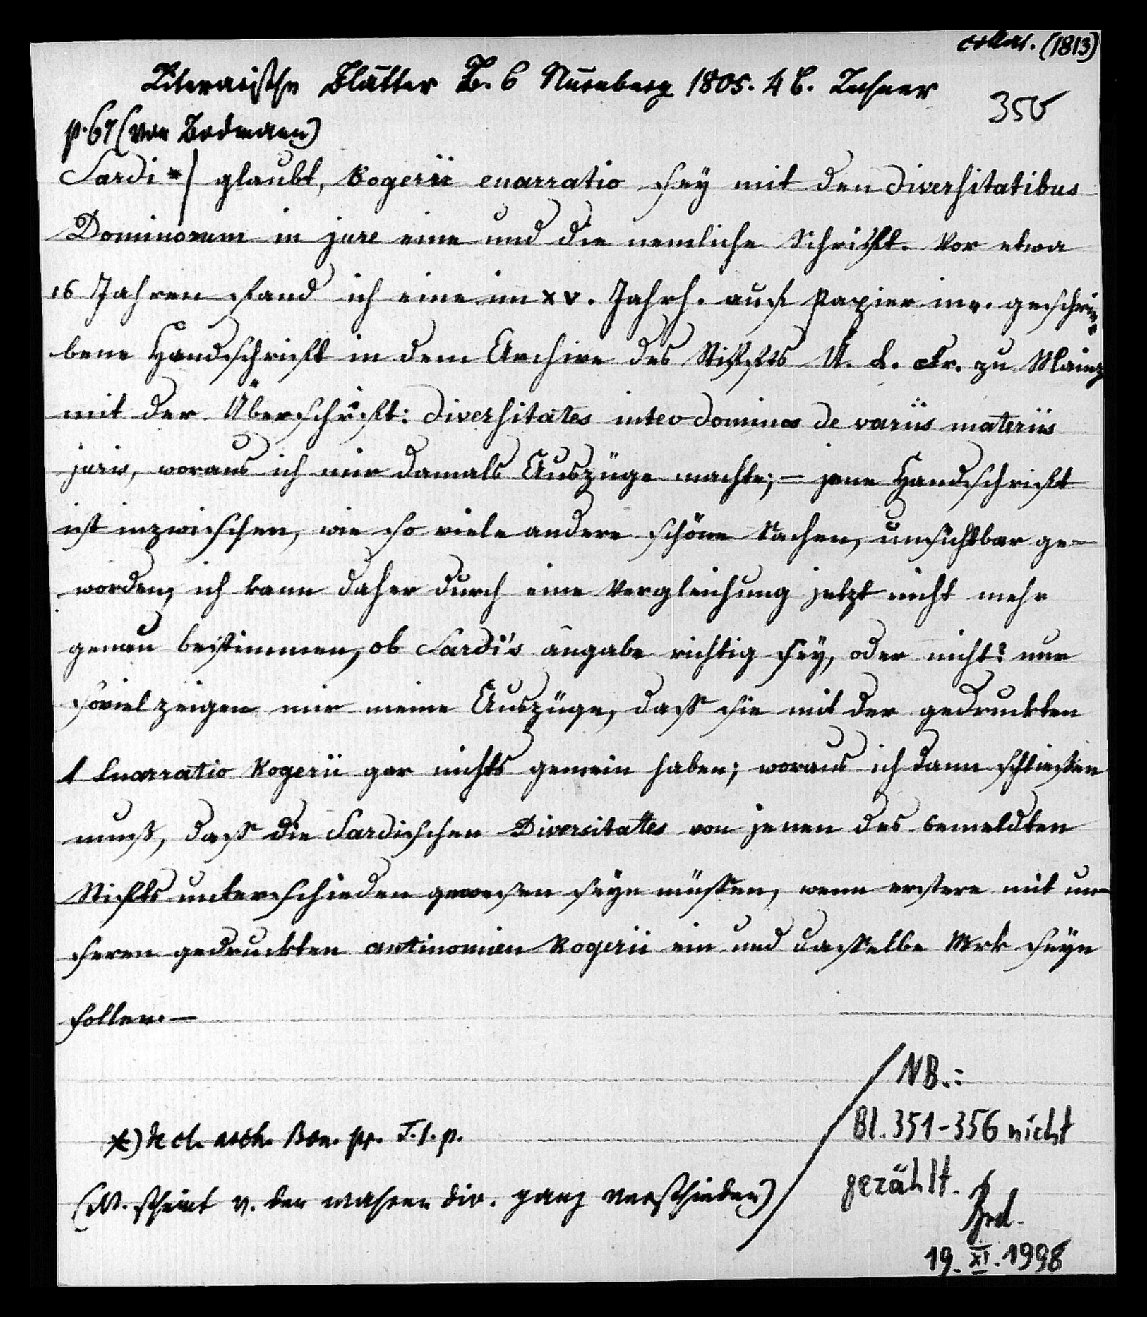 (1813)
Literarische Blätter B. 6 Nürnberg 1805. 4 b. Lechner
350
p. 67 (von Bodmann)
Sardi *) glaubt, Rogerii enarratio sey mit den diversitatibus
Dominorum in jure eine und die nemliche Schrift. Vor etwa
16 Jahren fand ich eine im XV. Jahrh. auf Papier geschrie-
bene Handschrift in dem Archive des Stifts U. L. Fr. zu Mainz
mit der Überschrift: diversitates inter dominos de variis materiis
juris, woraus ich mir damals Auszüge machte; – jene Handschrift
ist inzwischen, wie so viele andere schöne Sachen, unsichtbar ge-
worden; ich kann daher durch eine Vergleichung jetzt nicht mehr
genau bestimmen, ob Sardi's angabe richtig sey, oder nicht? nur
soviel zeigen mir meine Auszüge, dass sie mit der gedruckten
Enarratio Rogerii gar nichts gemein haben; woraus ich dann schliessen
muss, dass die Sardischen Diversitates von jenen des bemeldten
Stifts unterschieden gewesen seyn müssen, wenn erstere mit un-
seren gedruckten antinomien Rogerii ein und dasselbe Werk seyn
sollen. –
*) de cl. arch. Bon. pr. T. 1. p.
(NB. scheint v. der wahren div. ganz verschieden)
NB.:
Bl. 351-356 nicht
gezählt.
19. XI. 1998